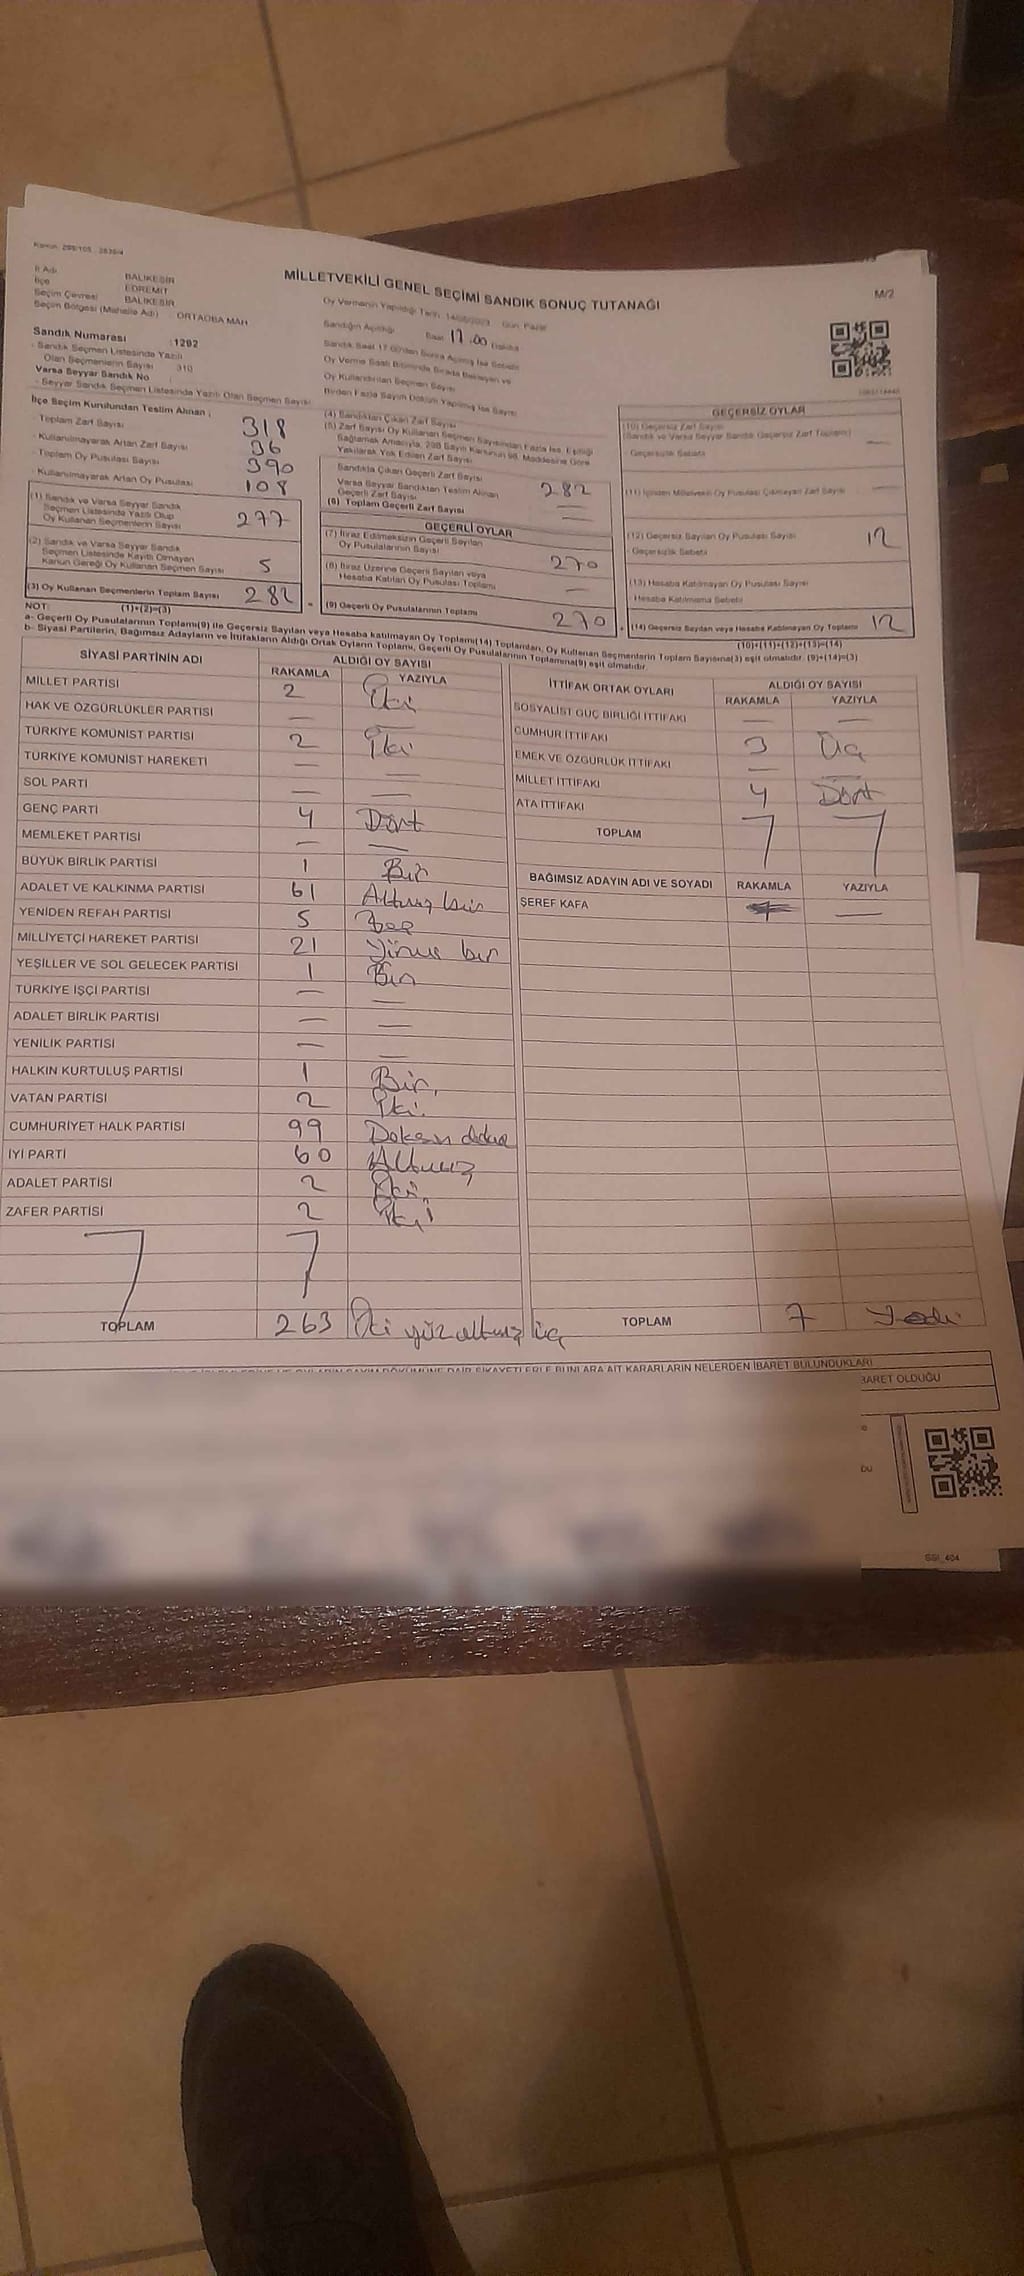 Kanun: 298/105 - 2839/4
MİLLETVEKİLİ GENEL SEÇİMİ SANDIK SONUÇ TUTANAĞI
M/2
İl Adı BALIKESİR
İlçe EDREMİT
Seçim Çevresi BALIKESİR
Seçim Bölgesi (Mahalle Adı) : ORTAOBA MAH
Sandık Numarası :1292
- Sandık Seçmen Listesinde Yazılı
Olan Seçmenlerin Sayısı 310
Varsa Seyyar Sandık No :
- Seyyar Sandık Seçmen Listesinde Yazılı Olan Seçmen Sayısı
Oy Vermenin Yapıldığı Tarih: 14/05/2023 Gün: Pazar
Sandığın Açıldığı Saat 17.00 Dakika
Sandık Saat 17:00'den Sonra Açılmış İse Sebebi
Oy Verme Saati Bitiminde Sırada Bekleyen ve
Oy Kullandırılan Seçmen Sayısı
Birden Fazla Sayım Döküm Yapılmış İse Sayısı
İlçe Seçim Kurulundan Teslim Alınan :
- Toplam Zarf Sayısı 318
- Kullanılmayarak Artan Zarf Sayısı 36
- Toplam Oy Pusulası Sayısı 390
- Kullanılmayarak Artan Oy Pusulası 108
(1) Sandık ve Varsa Seyyar Sandık
Seçmen Listesinde Yazılı Olup
Oy Kullanan Seçmenlerin Sayısı 277
(2) Sandık ve Varsa Seyyar Sandık
Seçmen Listesinde Kayıtlı Olmayan
Kanun Gereği Oy Kullanan Seçmen Sayısı 5
(3) Oy Kullanan Seçmenlerin Toplam Sayısı 282
(1)+(2)=(3)
(4) Sandıktan Çıkan Zarf Sayısı
(5) Zarf Sayısı Oy Kullanan Seçmen Sayısından Fazla İse, Eşitliği
Sağlamak Amacıyla, 298 Sayılı Kanunun 98. Maddesine Göre
Yakılarak Yok Edilen Zarf Sayısı
Sandıkta Çıkan Geçerli Zarf Sayısı 282
Varsa Seyyar Sandıktan Teslim Alınan
Geçerli Zarf Sayısı —
(6) Toplam Geçerli Zarf Sayısı —
GEÇERLİ OYLAR
(7) İtiraz Edilmeksizin Geçerli Sayılan
Oy Pusulalarının Sayısı 270
(8) İtiraz Üzerine Geçerli Sayılan veya
Hesaba Katılan Oy Pusulası Toplamı —
(9) Geçerli Oy Pusulalarının Toplamı 270
GEÇERSİZ OYLAR
(10) Geçersiz Zarf Sayısı
(Sandık ve Varsa Seyyar Sandık Geçersiz Zarf Toplamı) —
Geçersizlik Sebebi
(11) İçinden Milletvekili Oy Pusulası Çıkmayan Zarf Sayısı —
(12) Geçersiz Sayılan Oy Pusulası Sayısı 12
Geçersizlik Sebebi
(13) Hesaba Katılmayan Oy Pusulası Sayısı
Hesaba Katılmama Sebebi
(14) Geçersiz Sayılan veya Hesaba Katılmayan Oy Toplamı 12
(10)+(11)+(12)+(13)=(14)
NOT:
a- Geçerli Oy Pusulalarının Toplamı(9) ile Geçersiz Sayılan veya Hesaba katılmayan Oy Toplamı(14) Toplamları, Oy Kullanan Seçmenlerin Toplam Sayısına(3) eşit olmalıdır. (9)+(14)=(3)
b- Siyasi Partilerin, Bağımsız Adayların ve İttifakların Aldığı Ortak Oyların Toplamı, Geçerli Oy Pusulalarının Toplamına(9) eşit olmalıdır.
SİYASİ PARTİNİN ADI ALDIĞI OY SAYISI
RAKAMLA YAZIYLA
MİLLET PARTİSİ 2 İki
HAK VE ÖZGÜRLÜKLER PARTİSİ — —
TÜRKİYE KOMÜNİST PARTİSİ 2 İki
TÜRKİYE KOMÜNİST HAREKETİ — —
SOL PARTİ — —
GENÇ PARTİ 4 Dört
MEMLEKET PARTİSİ — —
BÜYÜK BİRLİK PARTİSİ 1 Bir
ADALET VE KALKINMA PARTİSİ 61 Altmış bir
YENİDEN REFAH PARTİSİ 5 Beş
MİLLİYETÇİ HAREKET PARTİSİ 21 Yirmi bir
YEŞİLLER VE SOL GELECEK PARTİSİ 1 Bir
TÜRKİYE İŞÇİ PARTİSİ — —
ADALET BİRLİK PARTİSİ — —
YENİLİK PARTİSİ — —
HALKIN KURTULUŞ PARTİSİ 1 Bir
VATAN PARTİSİ 2 İki
CUMHURİYET HALK PARTİSİ 99 Doksan dokuz
İYİ PARTİ 60 Altmış
ADALET PARTİSİ 2 İki
ZAFER PARTİSİ 2 İki
TOPLAM 263 İki yüz altmış üç
İTTİFAK ORTAK OYLARI ALDIĞI OY SAYISI
RAKAMLA YAZIYLA
SOSYALİST GÜÇ BİRLİĞİ İTTİFAKI — —
CUMHUR İTTİFAKI 3 Üç
EMEK VE ÖZGÜRLÜK İTTİFAKI — —
MİLLET İTTİFAKI 4 Dört
ATA İTTİFAKI
TOPLAM 7 7
BAĞIMSIZ ADAYIN ADI VE SOYADI RAKAMLA YAZIYLA
ŞEREF KAFA —
TOPLAM 7 Yedi
SAYIM DÖKÜMÜNE DAİR ŞİKAYETLERLE BUNLARA AİT KARARLARIN NELERDEN İBARET BULUNDUKLARI
BARET OLDUĞU
SSİ_404